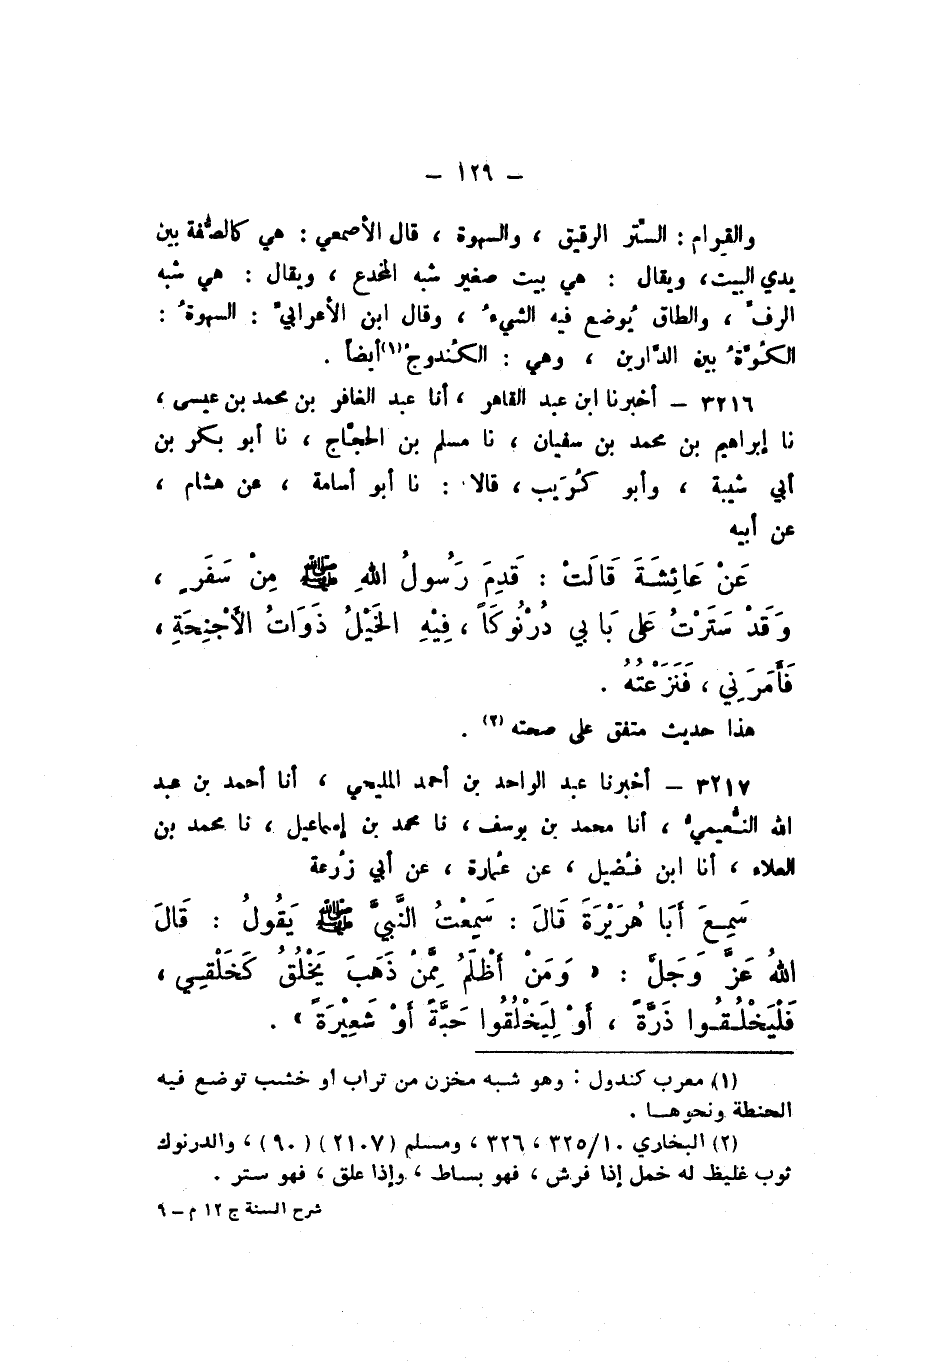 – ١٢٩ –
والقِرام : السِّتر الرقيق ، والسهوة ، قال الأصمعي : هي كالصُّفة بين
يدي البيت، ويقال : هي بيت صغير شبه المخدع ، ويقال : هي شبه
الرفّ ، والطاق يُوضع فيه الشيءُ ، وقال ابن الأعرابيّ : السهوةُ :
الكُوَّةُ بين الدَّارين ، وهي : الكُندوجُ(١) أيضاً .
٣٢١٦ – أخبرنا ابن عبد القاهر ، أنا عبد الغافر بن محمد بن عيسى ،
نا إبراهيم بن محمد بن سفيان ، نا مسلم بن الحجَّاج ، نا أبو بكر بن
أبي شيبة ، وأبو كُرَيب ، قالا : نا أبو أسامة ، عن هشام ،
عن أبيه
عَنْ عَائِشَةَ قَالَتْ : قَدِمَ رَسُولُ اللهِ ﷺ مِنْ سَفَرٍ ،
وَقَدْ سَتَرْتُ عَلَى بَابِي دُرْنُوكَاً ، فِيْهِ الخَيْلُ ذَوَاتُ الأَجْنِحَةِ ،
فَأَمَرَنِي ، فَنَزَعْتُهُ .
هذا حديث متفق على صحته (٢) .
٣٢١٧ – أخبرنا عبد الواحد بن أحمد المليحي ، أنا أحمد بن عبد
الله النُّعيميُ ، أنا محمد بن يوسف ، نا محمد بن إسماعيل ، نا محمد بن
العلاء ، أنا ابن فُضيل ، عن عُمارة ، عن أبي زُرعة
سَمِعَ أَبَا هُرَيْرَةَ قَالَ : سَمِعْتُ النَّبِيَّ ﷺ يَقُولُ : قَالَ
اللهُ عَزَّ وَجَلَّ : « وَمَنْ أَظْلَمُ مِمَّنْ ذَهَبَ يَخْلُقُ كَخَلْقِي ،
فَلْيَخْلُقُوا ذَرَّةً ، أَوْ لِيَخْلُقُوا حَبَّةً أَوْ شَعِيْرَةً » .
(١) معرب كندول : وهو شبه مخزن من تراب او خشب توضع فيه
الحنطة ونحوهـا .
(٢) البخاري ٣٢٥/١٠ ، ٣٢٦ ، ومسلم (٢١٠٧) (٩٠) ، والدرنوك
ثوب غليظ له خمل إذا فرش ، فهو بساط ، وإذا علق ، فهو ستر .
شرح السنة ج ١٢ م – ٩